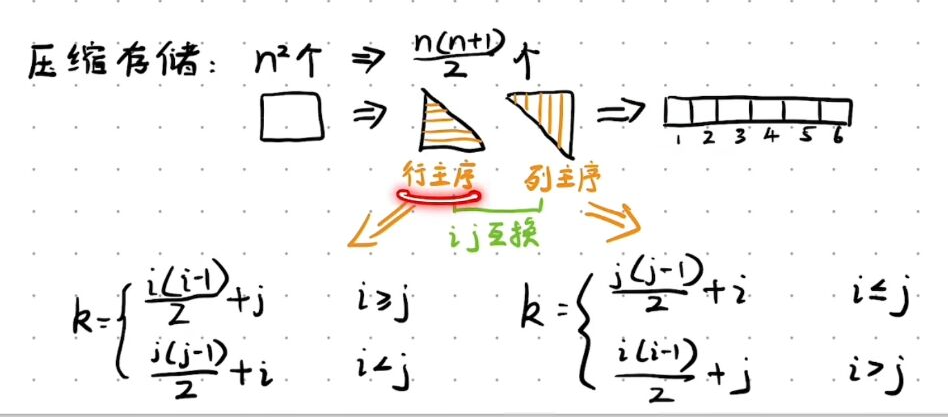 压缩存储: n²个 ⇒ n(n+1)/2 个
⇒ ⇒
1 2 3 4 5 6
行主序 列主序
i j 互换
k= { i(i-1)/2 + j i≥j
j(j-1)/2 + i i<j
k= { j(j-1)/2 + i i≤j
i(i-1)/2 + j i>j